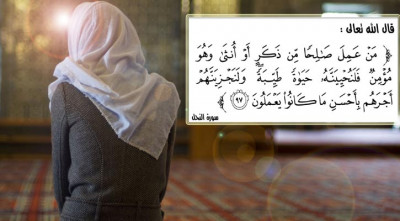 قال الله تعالى :
﴿ مَنْ عَمِلَ صَـٰلِحًا مِّن ذَكَرٍ أَوْ أُنثَىٰ وَهُوَ
مُؤْمِنٌ فَلَنُحْيِيَنَّهُۥ حَيَوٰةً طَيِّبَةً ۖ وَلَنَجْزِيَنَّهُمْ
أَجْرَهُم بِأَحْسَنِ مَا كَانُوا۟ يَعْمَلُونَ ٩٧ ﴾
سورة النحل